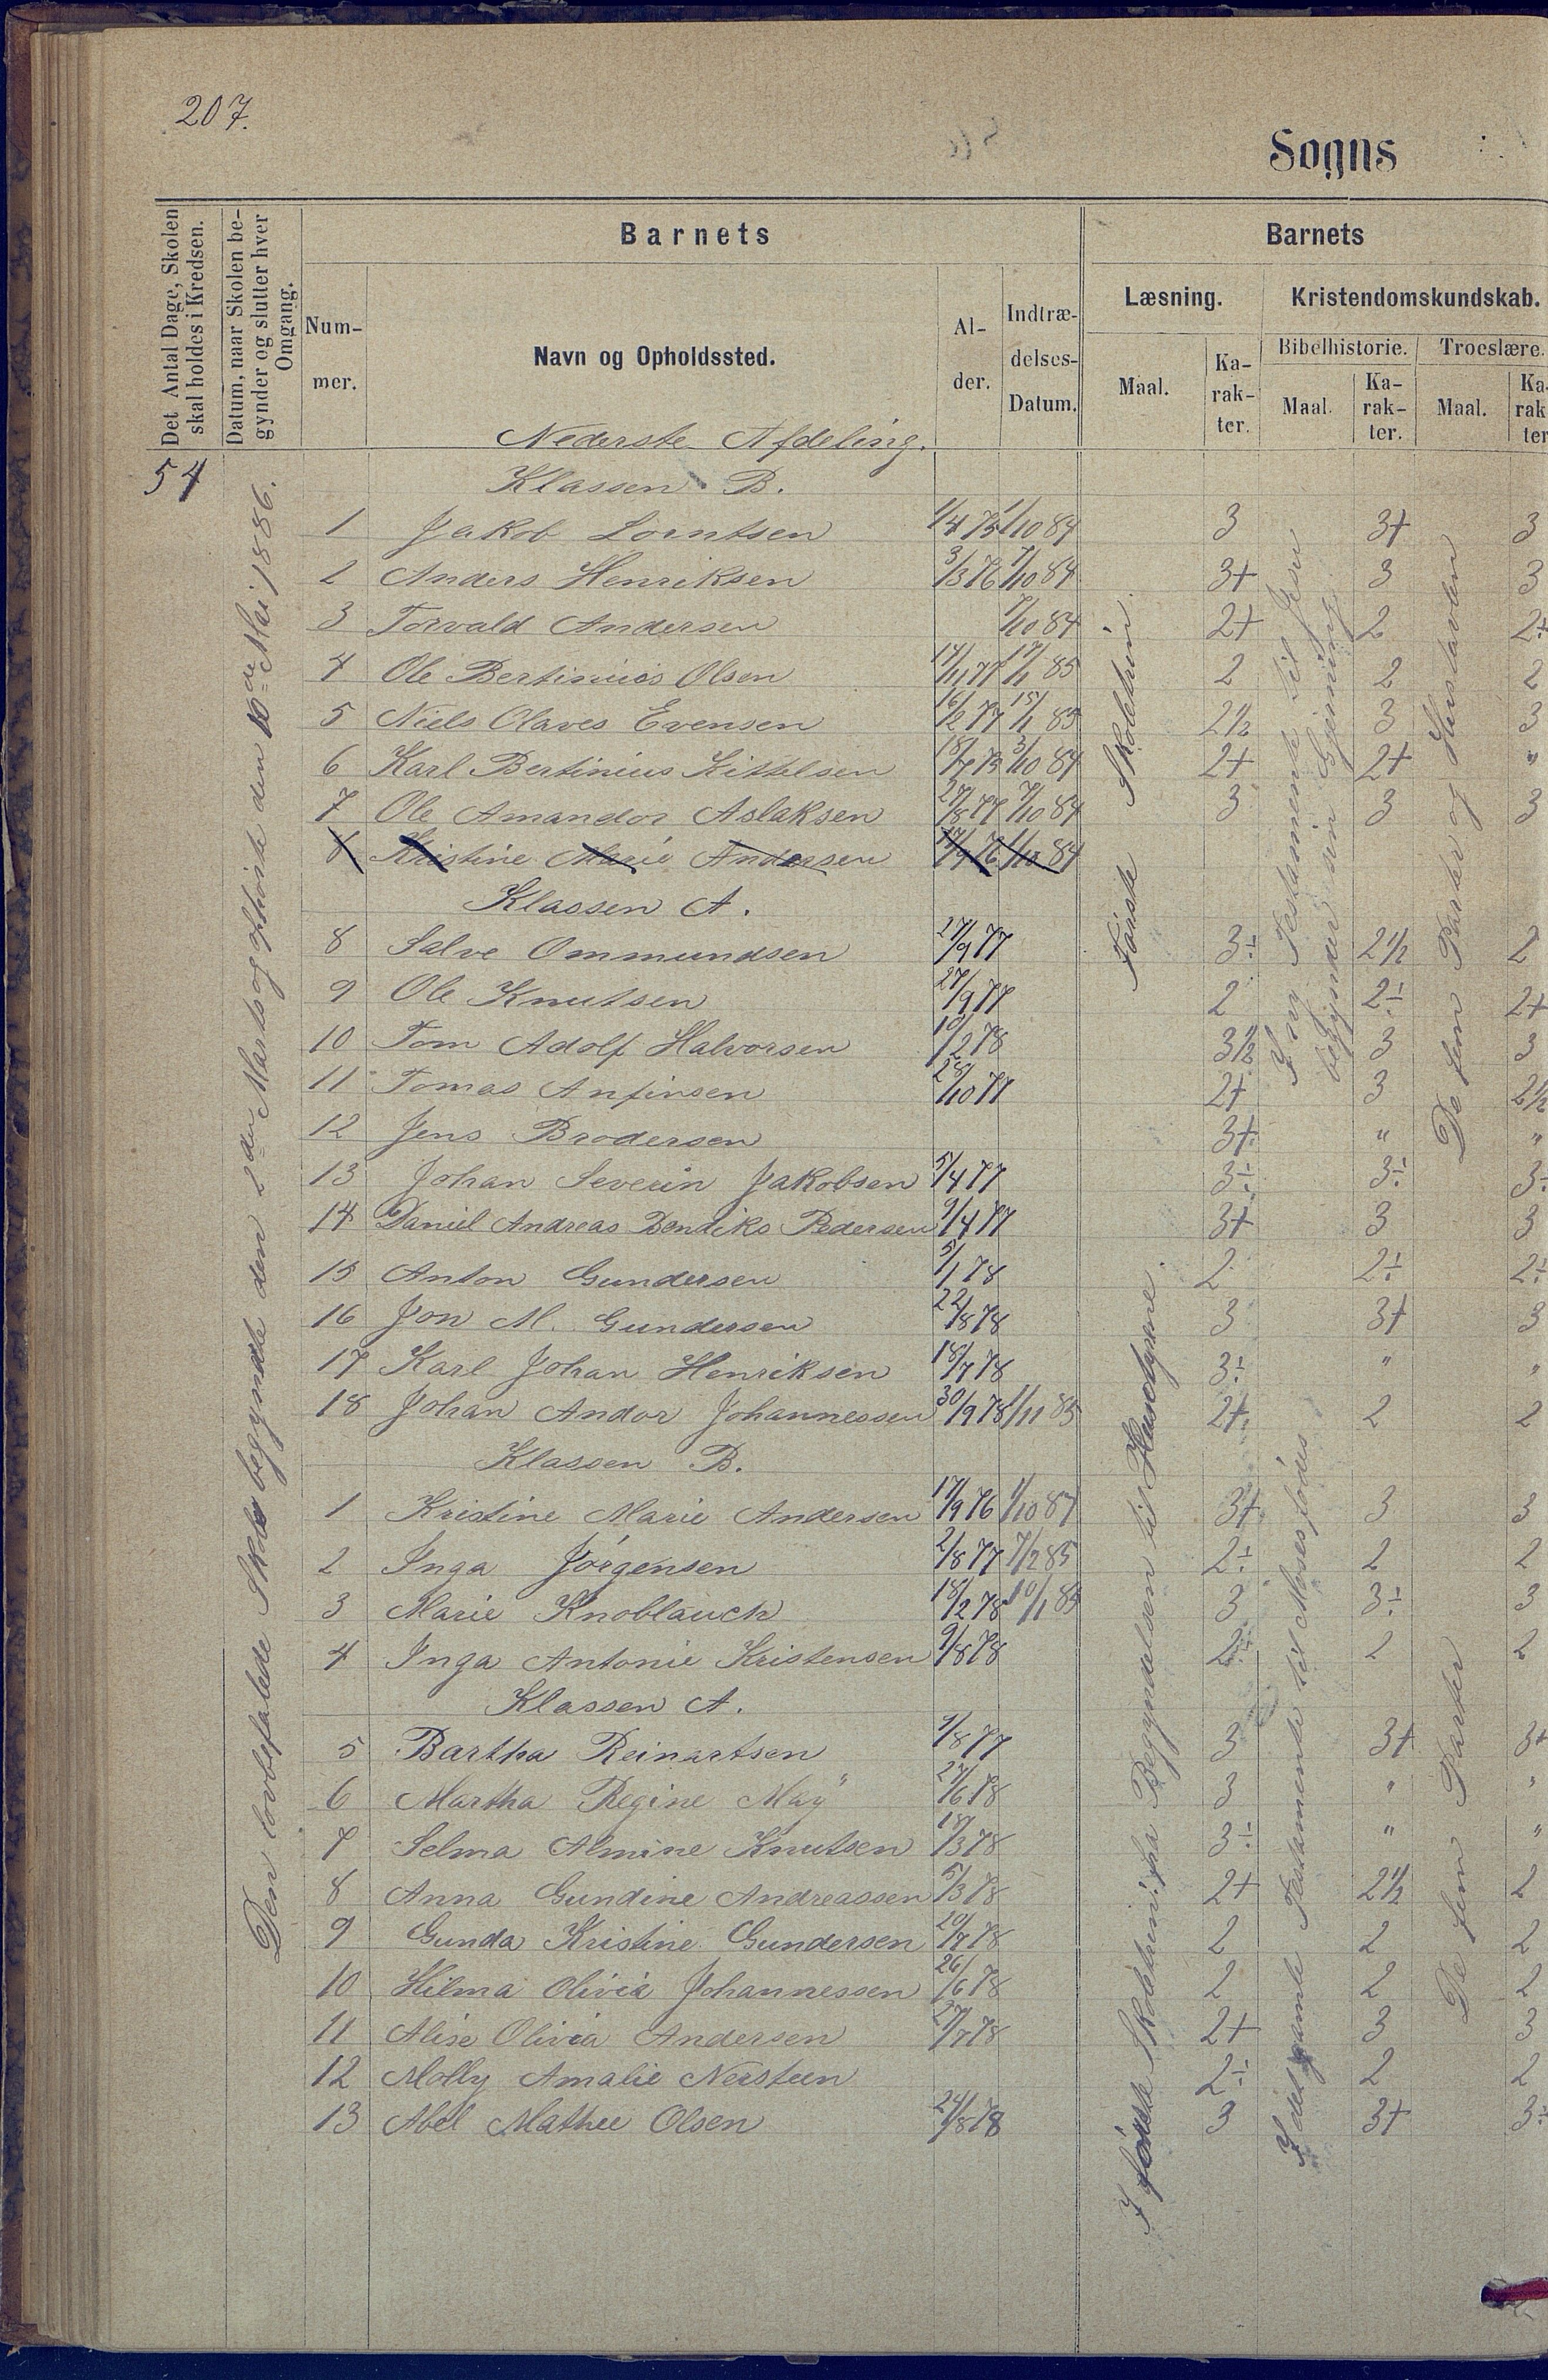 207.
Sogns
Det Antal Dage, Skolen
skal holdes i Kredsen.
Datum, naar Skolen be-
gynder og slutter hver
Omgang.
Barnets
Num-
mer.
Navn og Opholdssted.
Al-
der.
Indtræ-
delses-
Datum.
Barnets
Læsning.
Maal.
Ka-
rak-
ter.
Kristendomskundskab.
Bibelhistorie.
Maal.
Ka-
rak-
ter.
Troeslære.
Maal.
Ka-
rak
ter
54
Den lovbefalede Skole begyndte den 2den Marts og ophørte den 10de Mai 1886.
Nederste Afdeling.
Klassen B.
1 Jakob Lorntsen 1/4 75 1/10 84 3 3+ 3
2 Anders Henriksen 3/3 76 7/10 84 3+ 3 3
3 Torvald Andersen 7/10 84 2+ 2 2÷
4 Ole Bertinius Olsen 17/11 77 17/1 85 2 2 2
5 Niels Olaves Evensen 16/2 77 15/1 85 2½ 3 3
6 Karl Bertinius Kittelsen 18/7 75 3/10 84 2+ 2+ "
7 Ole Amandor Aslaksen 27/8 77 7/10 84 3 3 3
8 Kristine Marie Andersen 17/9 76 1/10 84
Klassen A.
8 Salve Ommundsen 27/9 77 3÷ 2½ 2
9 Ole Knutsen 27/9 77 2 2÷ 2+
10 Tom Adolf Halvorsen 10/2 78 3½ 3 3
11 Tomas Anfinsen 28/10 77 2+ 3 2½
12 Jens Brodersen 3+ " "
13 Johan Severin Jakobsen 5/4 77 3÷ 3÷ 3÷
14 Daniel Andreas Bendiks Pedersen 9/4 77 3+ 3 3
15 Anton Gundersen 5/1 78 2 2÷ 2÷
16 Jon M. Gundersen 22/8 78 3 3+ 3
17 Karl Johan Henriksen 18/7 78 3÷ " "
18 Johan Andor Johannessen 30/9 78 1/11 85 2+ 2 2
Klassen B.
1 Kristine Marie Andersen 17/9 76 1/10 84 3+ 3 3
2 Inga Jørgensen 2/8 77 7/2 85 2÷ 2 2
3 Marie Knoblauch 18/2 78 10/1 85 3 3÷ 3
4 Inga Antonie Kristensen 9/8 78 2÷ 2 2
Klassen A.
5 Bartha Reinartsen 1/8 77 3 3+ 3+
6 Martha Regine May 27/6 78 3 " "
7 Selma Almine Knutsen 17/3 78 3÷ " "
8 Anna Gundine Andreassen 5/3 78 2+ 2½ 2
9 Gunda Kristine Gundersen 20/7 78 2 2 2
10 Hilma Olivia Johannessen 26/6 78 2 2 2
11 Alise Olivia Andersen 27/7 78 2+ 3 3
12 Molly Amalie Nersteen 2÷ 2 2
13 Abel Mathee Olsen 24/8 78 3 3+ 3÷
Første Skoletrin.
I første Skoletrin: fra Begyndelsen til Husdyrene.
I ny Testamente til Jesus
begynder sin Gjerning
I det gamle Testamente til Moses fødes
De fem Parter og Hustavlen
De fem Parter